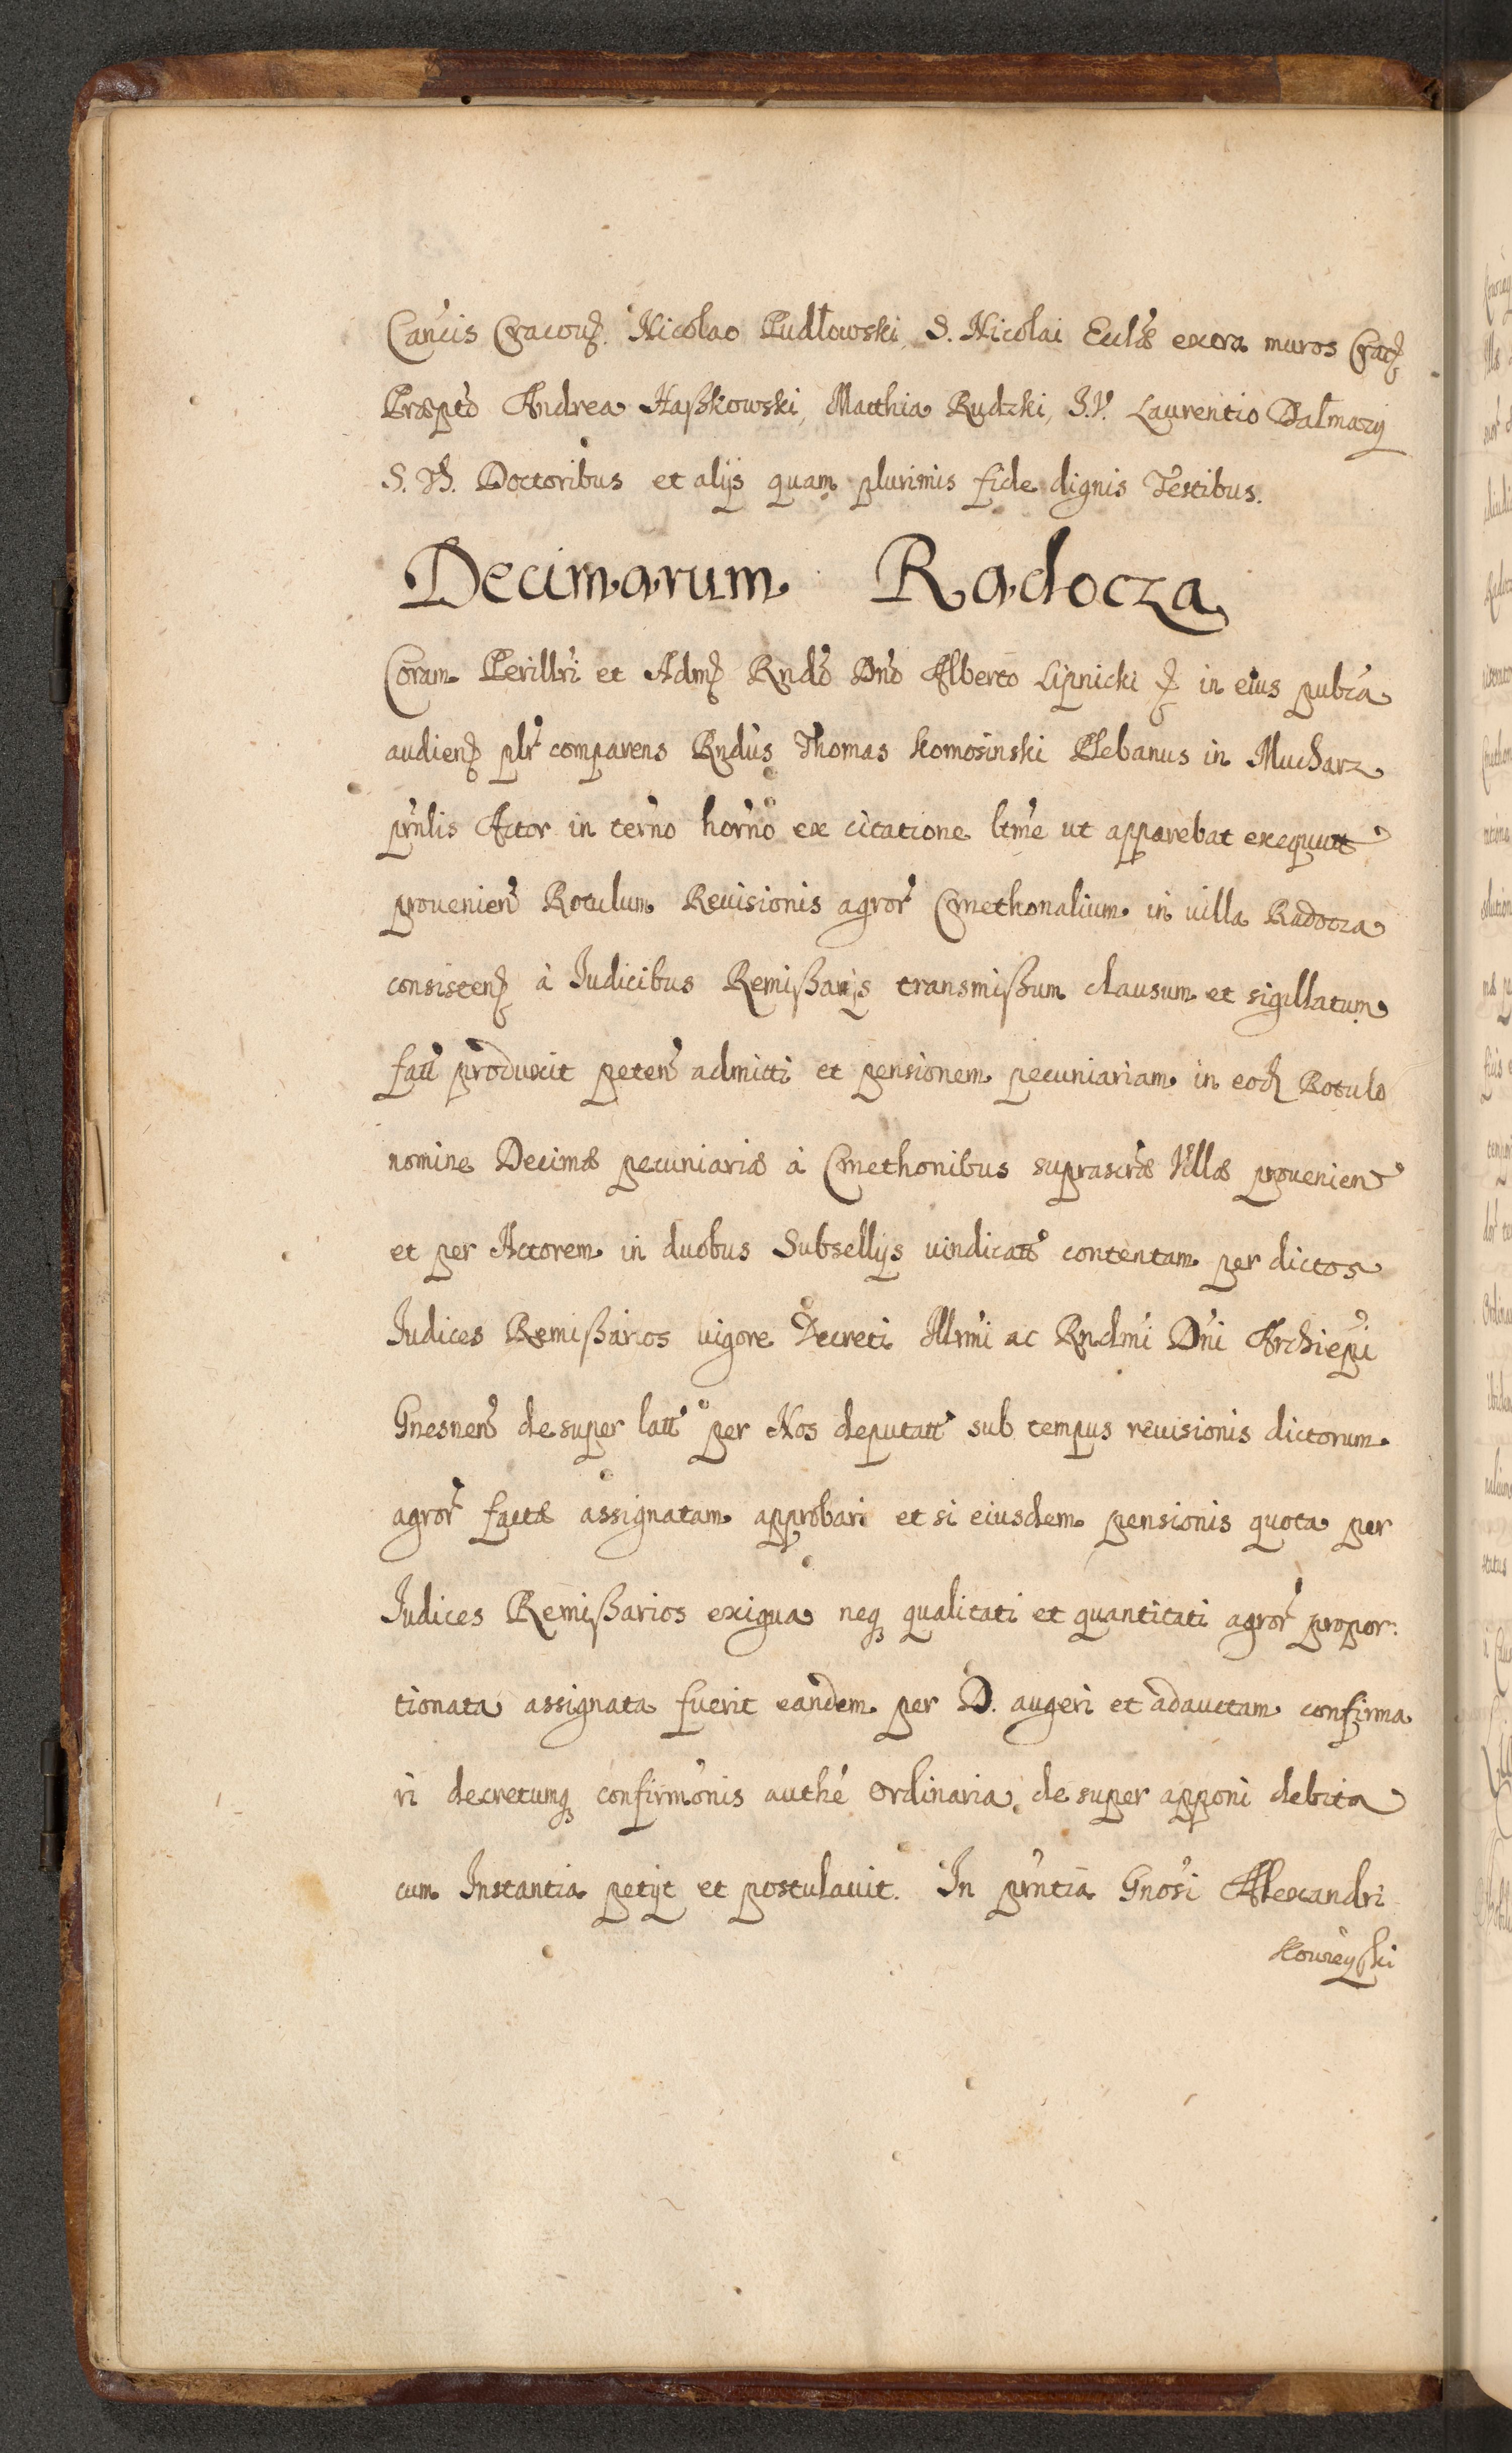 Canɔ̃cis Cracouȝ. Nicolao Pudłowski, S. Nicolai Eccl̃æ extra muros Cracȝ
Præpt̃o Andrea Haßkowski, Matthia Rudzki, I.V. Laurentio Dalmazy
S. Th. Doctoribus et alijs quam plurimis fide dignis Testibus.
Decimarum Radocza
Coram Perillr̃i et Admȝ Rnd̃o Dño Alberto Lipnicki ȝ in eius publ̃ca
audienȝ plr̃ comparens Rnd̃us Thomas Komosinski Plebanus in Mucharz
prñlis Actor in term̃o horñ̃o ex citatione ltm̃e ut apparebat exequutt
proueniens̃ Rotulum Reuisionis agror̃ Cmethonalium in villa Radocza
consistenȝ à Iudicibus Remißarijs transmißum clausum et sigillatum
fatt̃ produxit petens̃ admitti et pensionem pecuniariam in eodȝ Rotulo
nomine Decimæ pecuniariæ à Cmethonibus suprascr̃æ Villæ prouenien̄
et per Actorem in duobus Subsellijs vindicatt̃ contentam per dictos
Iudices Remißarios vigore Decreti Illrm̃i ac Rndm̃i Dñi Archiepĩ
Gnesnens̃ desuper latt̃ per Nos deputatt̃ sub tempus reuisionis dictorum
agror̃ factæ assignatam approbari et si eiusdem pensionis quota per
Iudices Remißarios exigua neqȝ qualitati et quantitati agror̃ propor:
tionata assignata fuerit eandem per D. augeri et adauctam confirma
ri decretumqȝ confirm̃onis authẽ ordinaria desuper apponi debita
cum Instantia petijt et postulauit. In prñtia Gnos̃i Alexandri